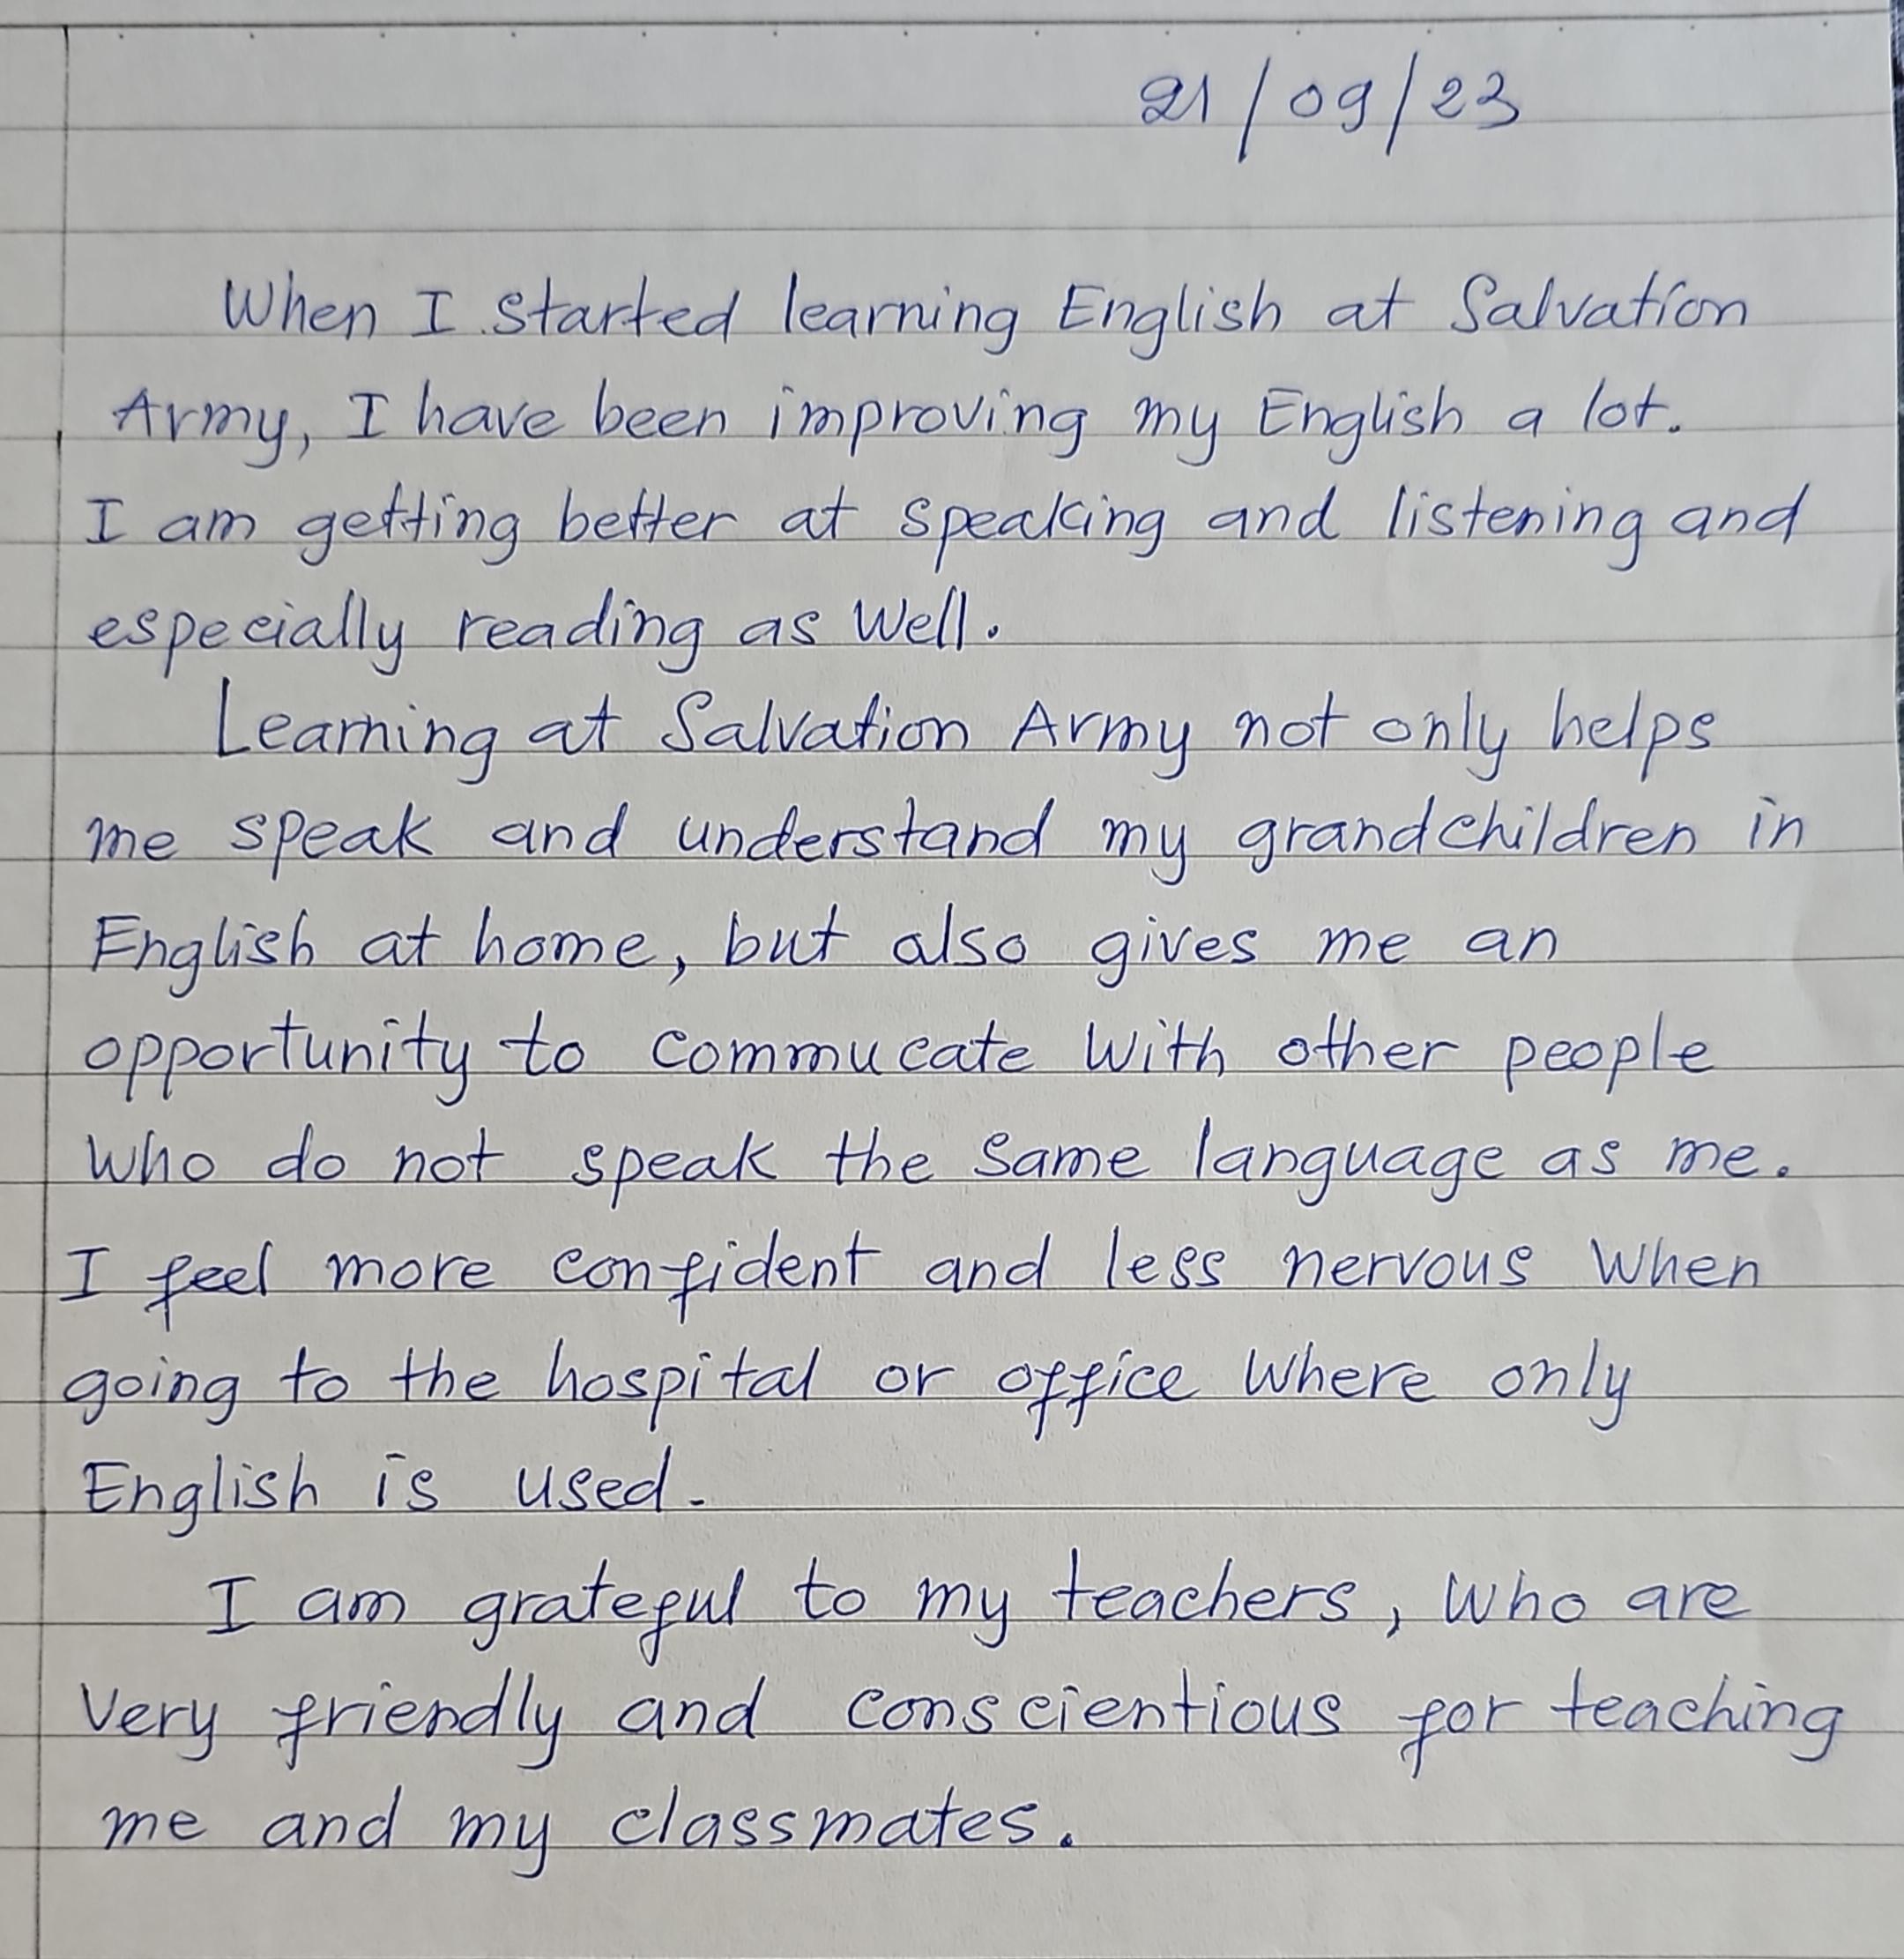 21/09/23
When I started learning English at Salvation
Army, I have been improving my English a lot.
I am getting better at speaking and listening and
especially reading as well.
Learning at Salvation Army not only helps
me speak and understand my grandchildren in
English at home, but also gives me an
opportunity to commucate with other people
who do not speak the same language as me.
I feel more confident and less nervous when
going to the hospital or office where only
English is used.
I am grateful to my teachers, who are
very friendly and conscientious for teaching
me and my classmates.